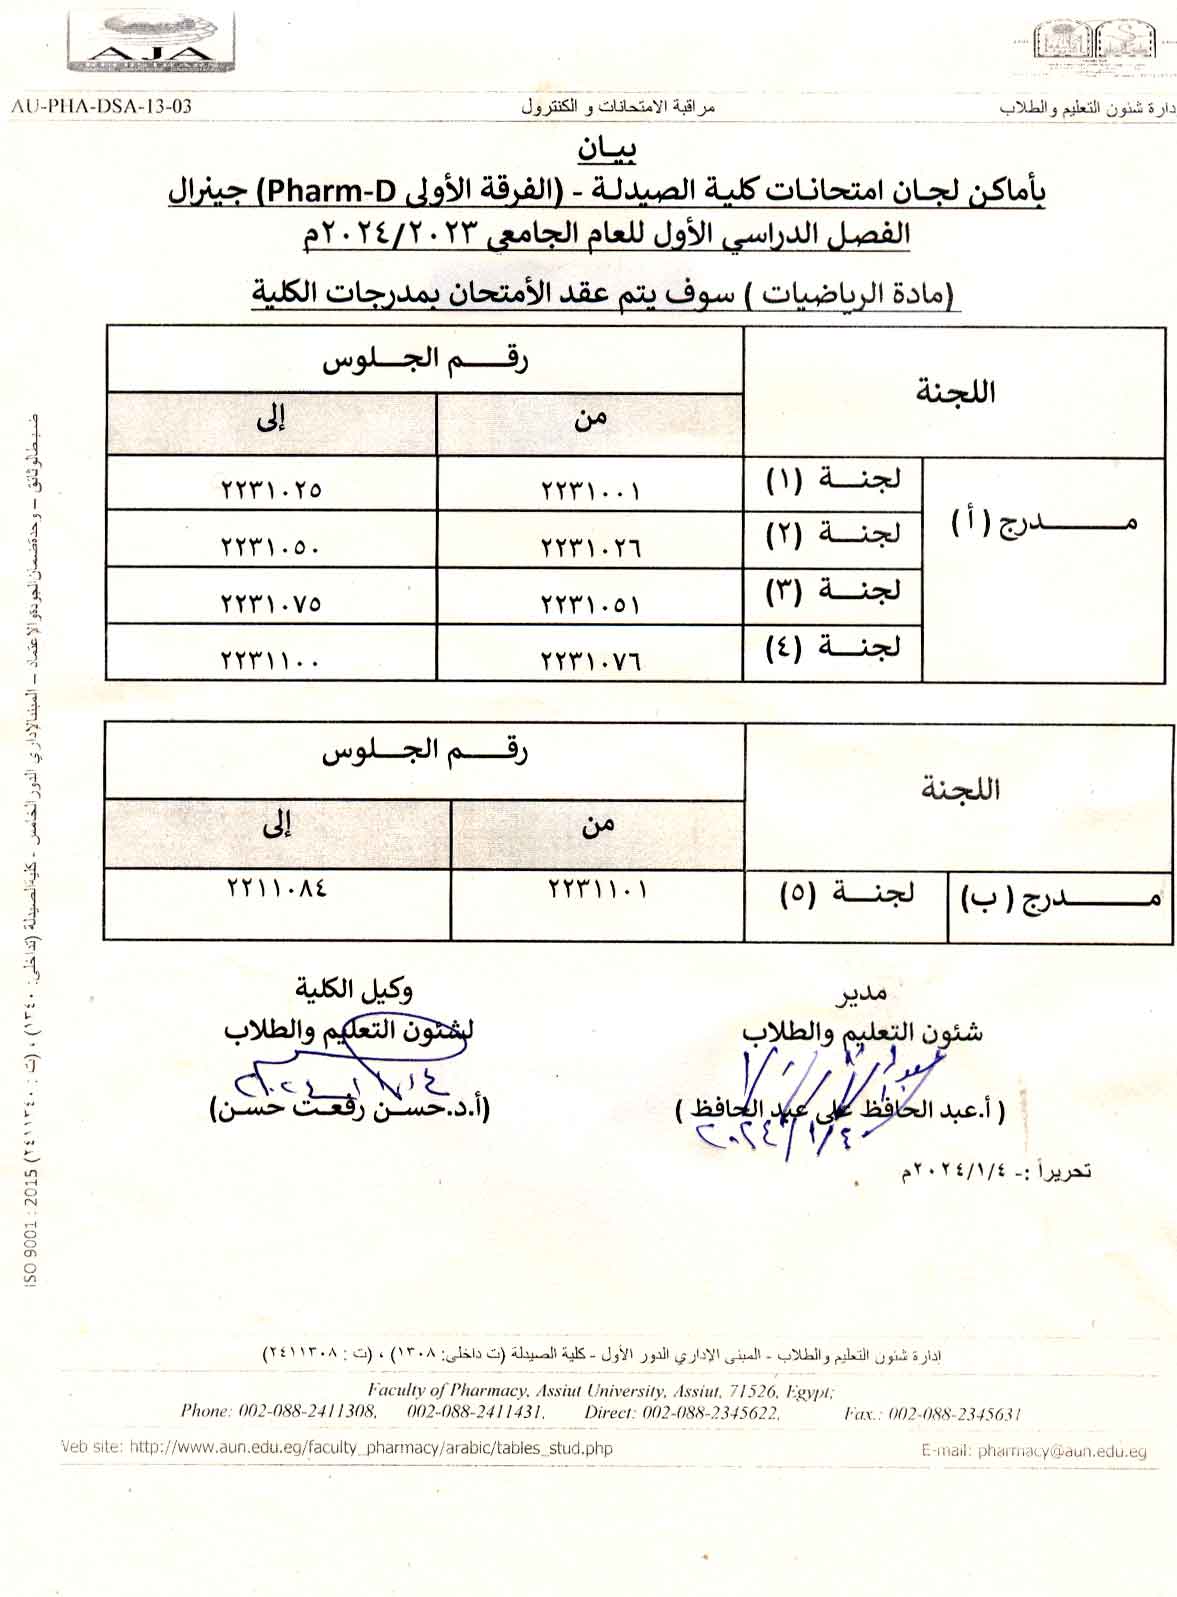 AJA
إدارة شئون التعليم والطلاب
مراقبة الامتحانات و الكنترول
AU-PHA-DSA-13-03
بيـان
بأماكن لجـان امتحانـات كلية الصيدلـة - (الفرقة الأولى Pharm-D) جينرال
الفصل الدراسي الأول للعام الجامعي ٢٠٢٤/٢٠٢٣م
(مادة الرياضيات ) سوف يتم عقد الأمتحان بمدرجات الكلية
اللجنة
رقـــم الجـــلوس
من
إلى
مـــــــدرج ( أ )
لجنـــة (١) ٢٢٣١٠٠١ ٢٢٣١٠٢٥
لجنـــة (٢) ٢٢٣١٠٢٦ ٢٢٣١٠٥٠
لجنـــة (٣) ٢٢٣١٠٥١ ٢٢٣١٠٧٥
لجنـــة (٤) ٢٢٣١٠٧٦ ٢٢٣١١٠٠
اللجنة
رقـــم الجـــلوس
من
إلى
مـــــــدرج ( ب) لجنـــة (٥) ٢٢٣١١٠١ ٢٢١١٠٨٤
مدير
شئون التعليم والطلاب
( أ.عبد الحافظ على عبد الحافظ )
٢٠٢٤/١/٤
وكيل الكلية
لشئون التعليم والطلاب
(أ.د.حسـن رفعت حسن)
تحريراً :- ٢٠٢٤/١/٤م
ضبط الوثائق – وحدة ضمان الجودة والاعتماد – المبنى الإداري الدور الخامس - كلية الصيدلة (داخلى: ١٣٤٠) ، (ت : ٢٤١١٣٤٠) ISO 9001 : 2015
إدارة شئون التعليم والطلاب - المبنى الإداري الدور الأول - كلية الصيدلة (ت داخلى: ١٣٠٨) ، (ت : ٢٤١١٣٠٨)
Faculty of Pharmacy, Assiut University, Assiut, 71526, Egypt;
Phone: 002-088-2411308, 002-088-2411431, Direct: 002-088-2345622, Fax.: 002-088-2345631
Veb site: http://www.aun.edu.eg/faculty_pharmacy/arabic/tables_stud.php E-mail: pharmacy@aun.edu.eg